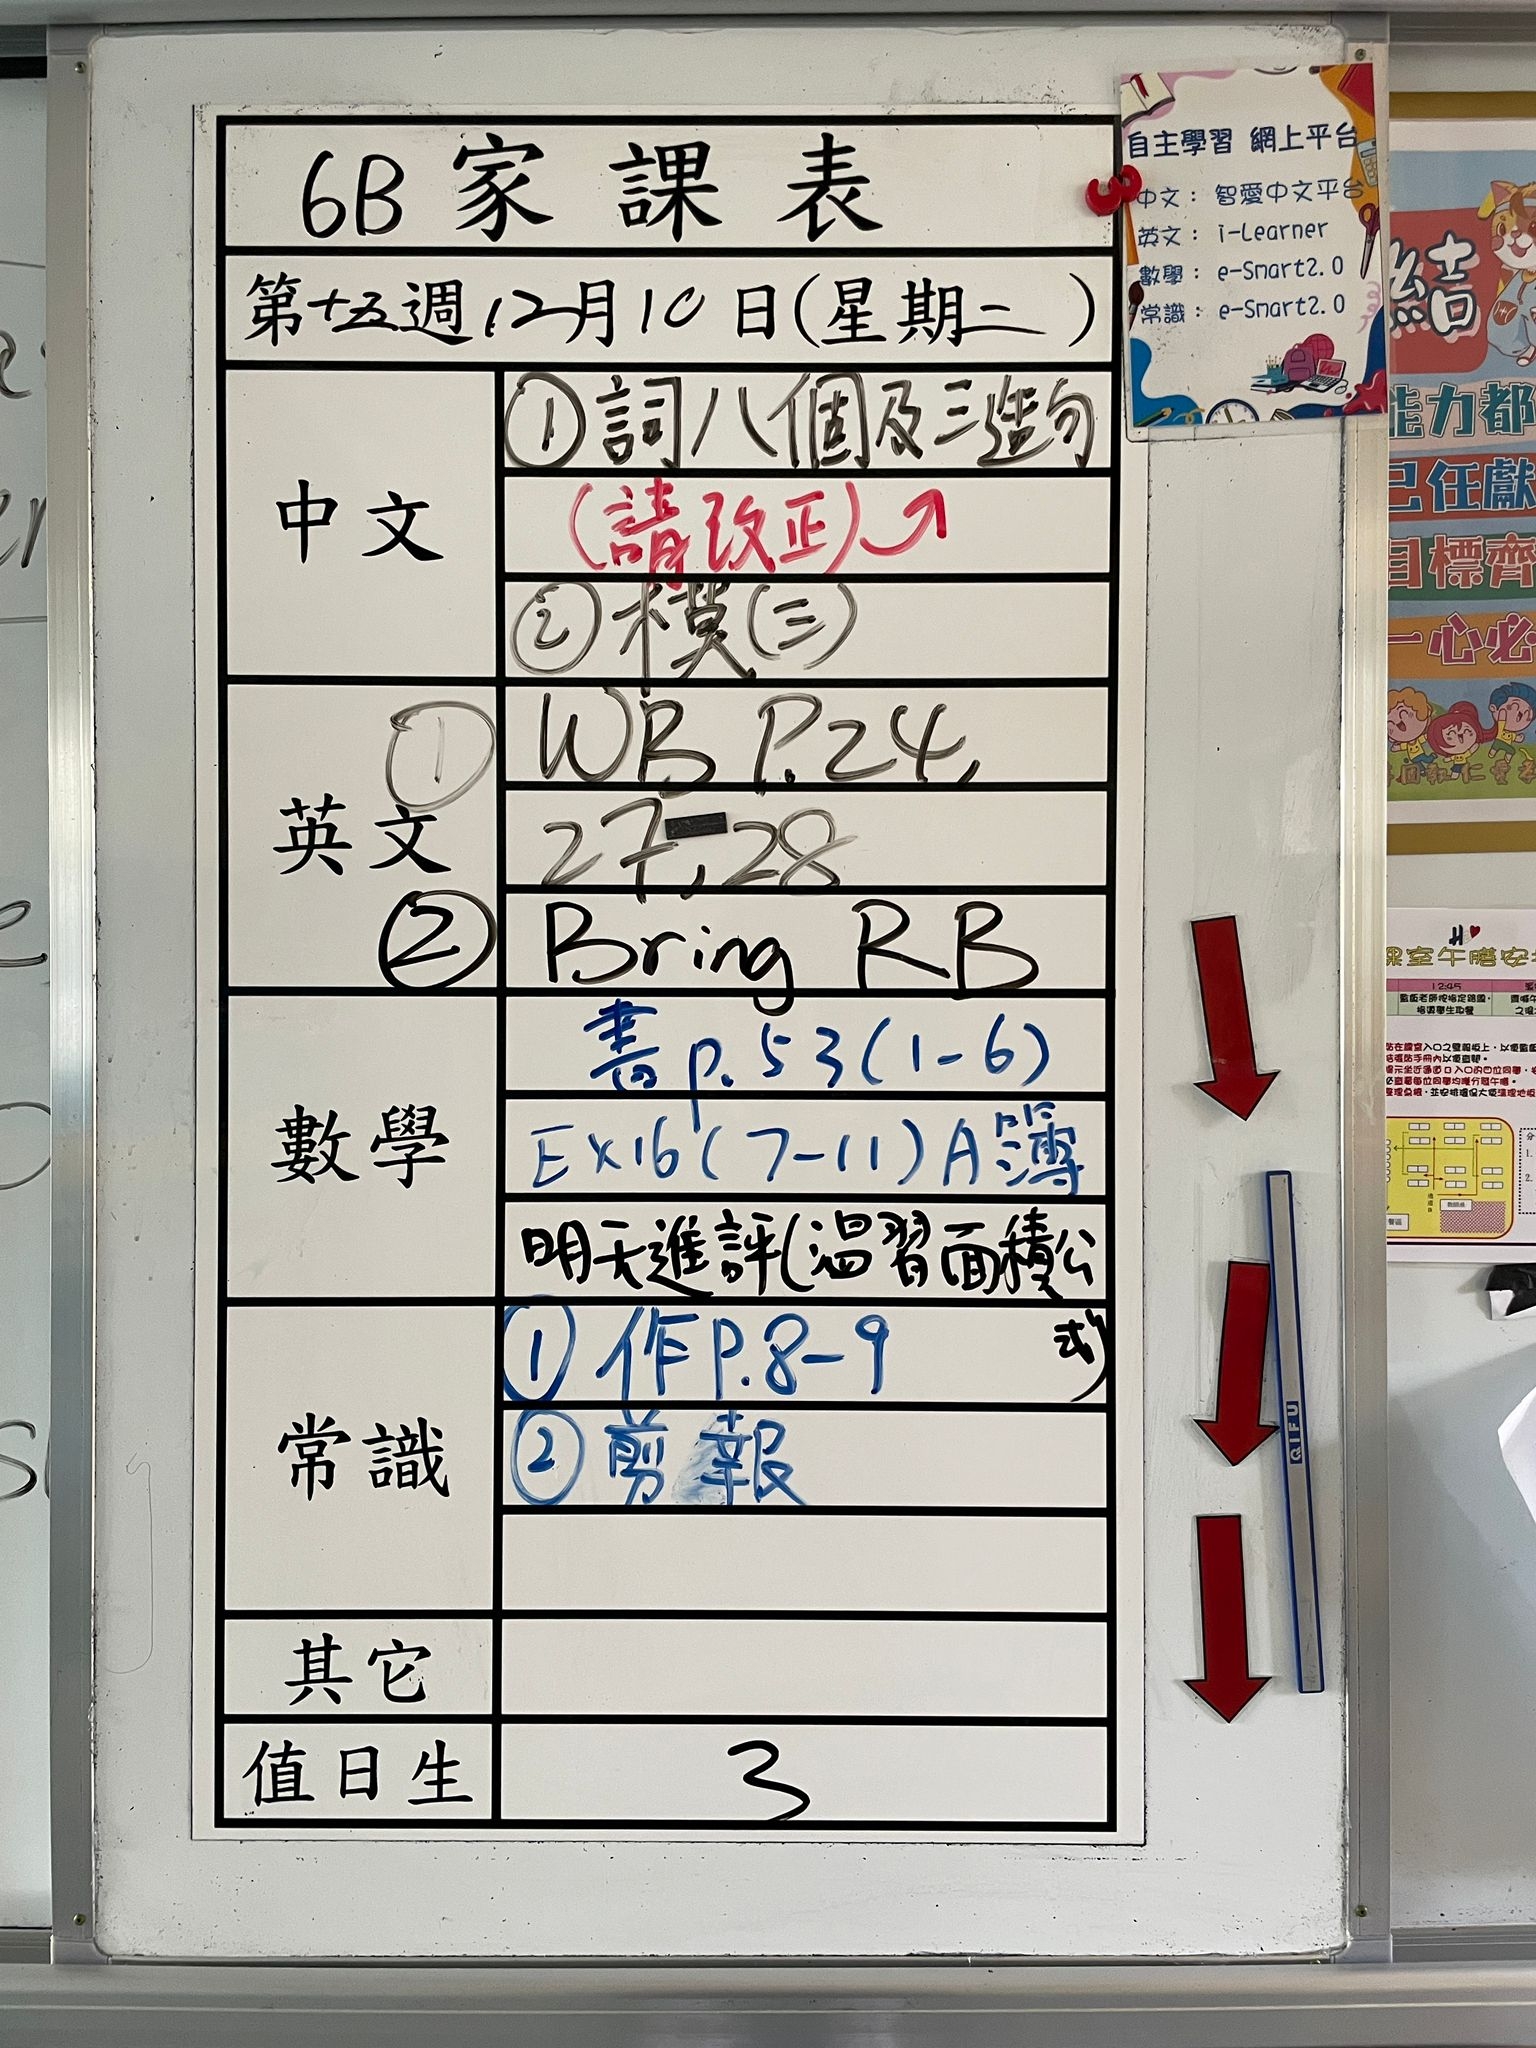 6B 家課表
第十五週 12月10日(星期二)
中文
①詞八個及三造句
(請改正)
②模(三)
英文
① WB P.24,
27, 28
② Bring RB
數學
書p.53(1-6)
Ex16(7-11)A簿
明天進評(溫習面積公
式)
常識
①作P.8-9
②剪報
其它
值日生
3
自主學習 網上平台
中文：智愛中文平台
英文：i-Learner
數學：e-Smart2.0
常識：e-Smart2.0
QIFU
結
能力都
己任獻
目標齊
一心必
12:45